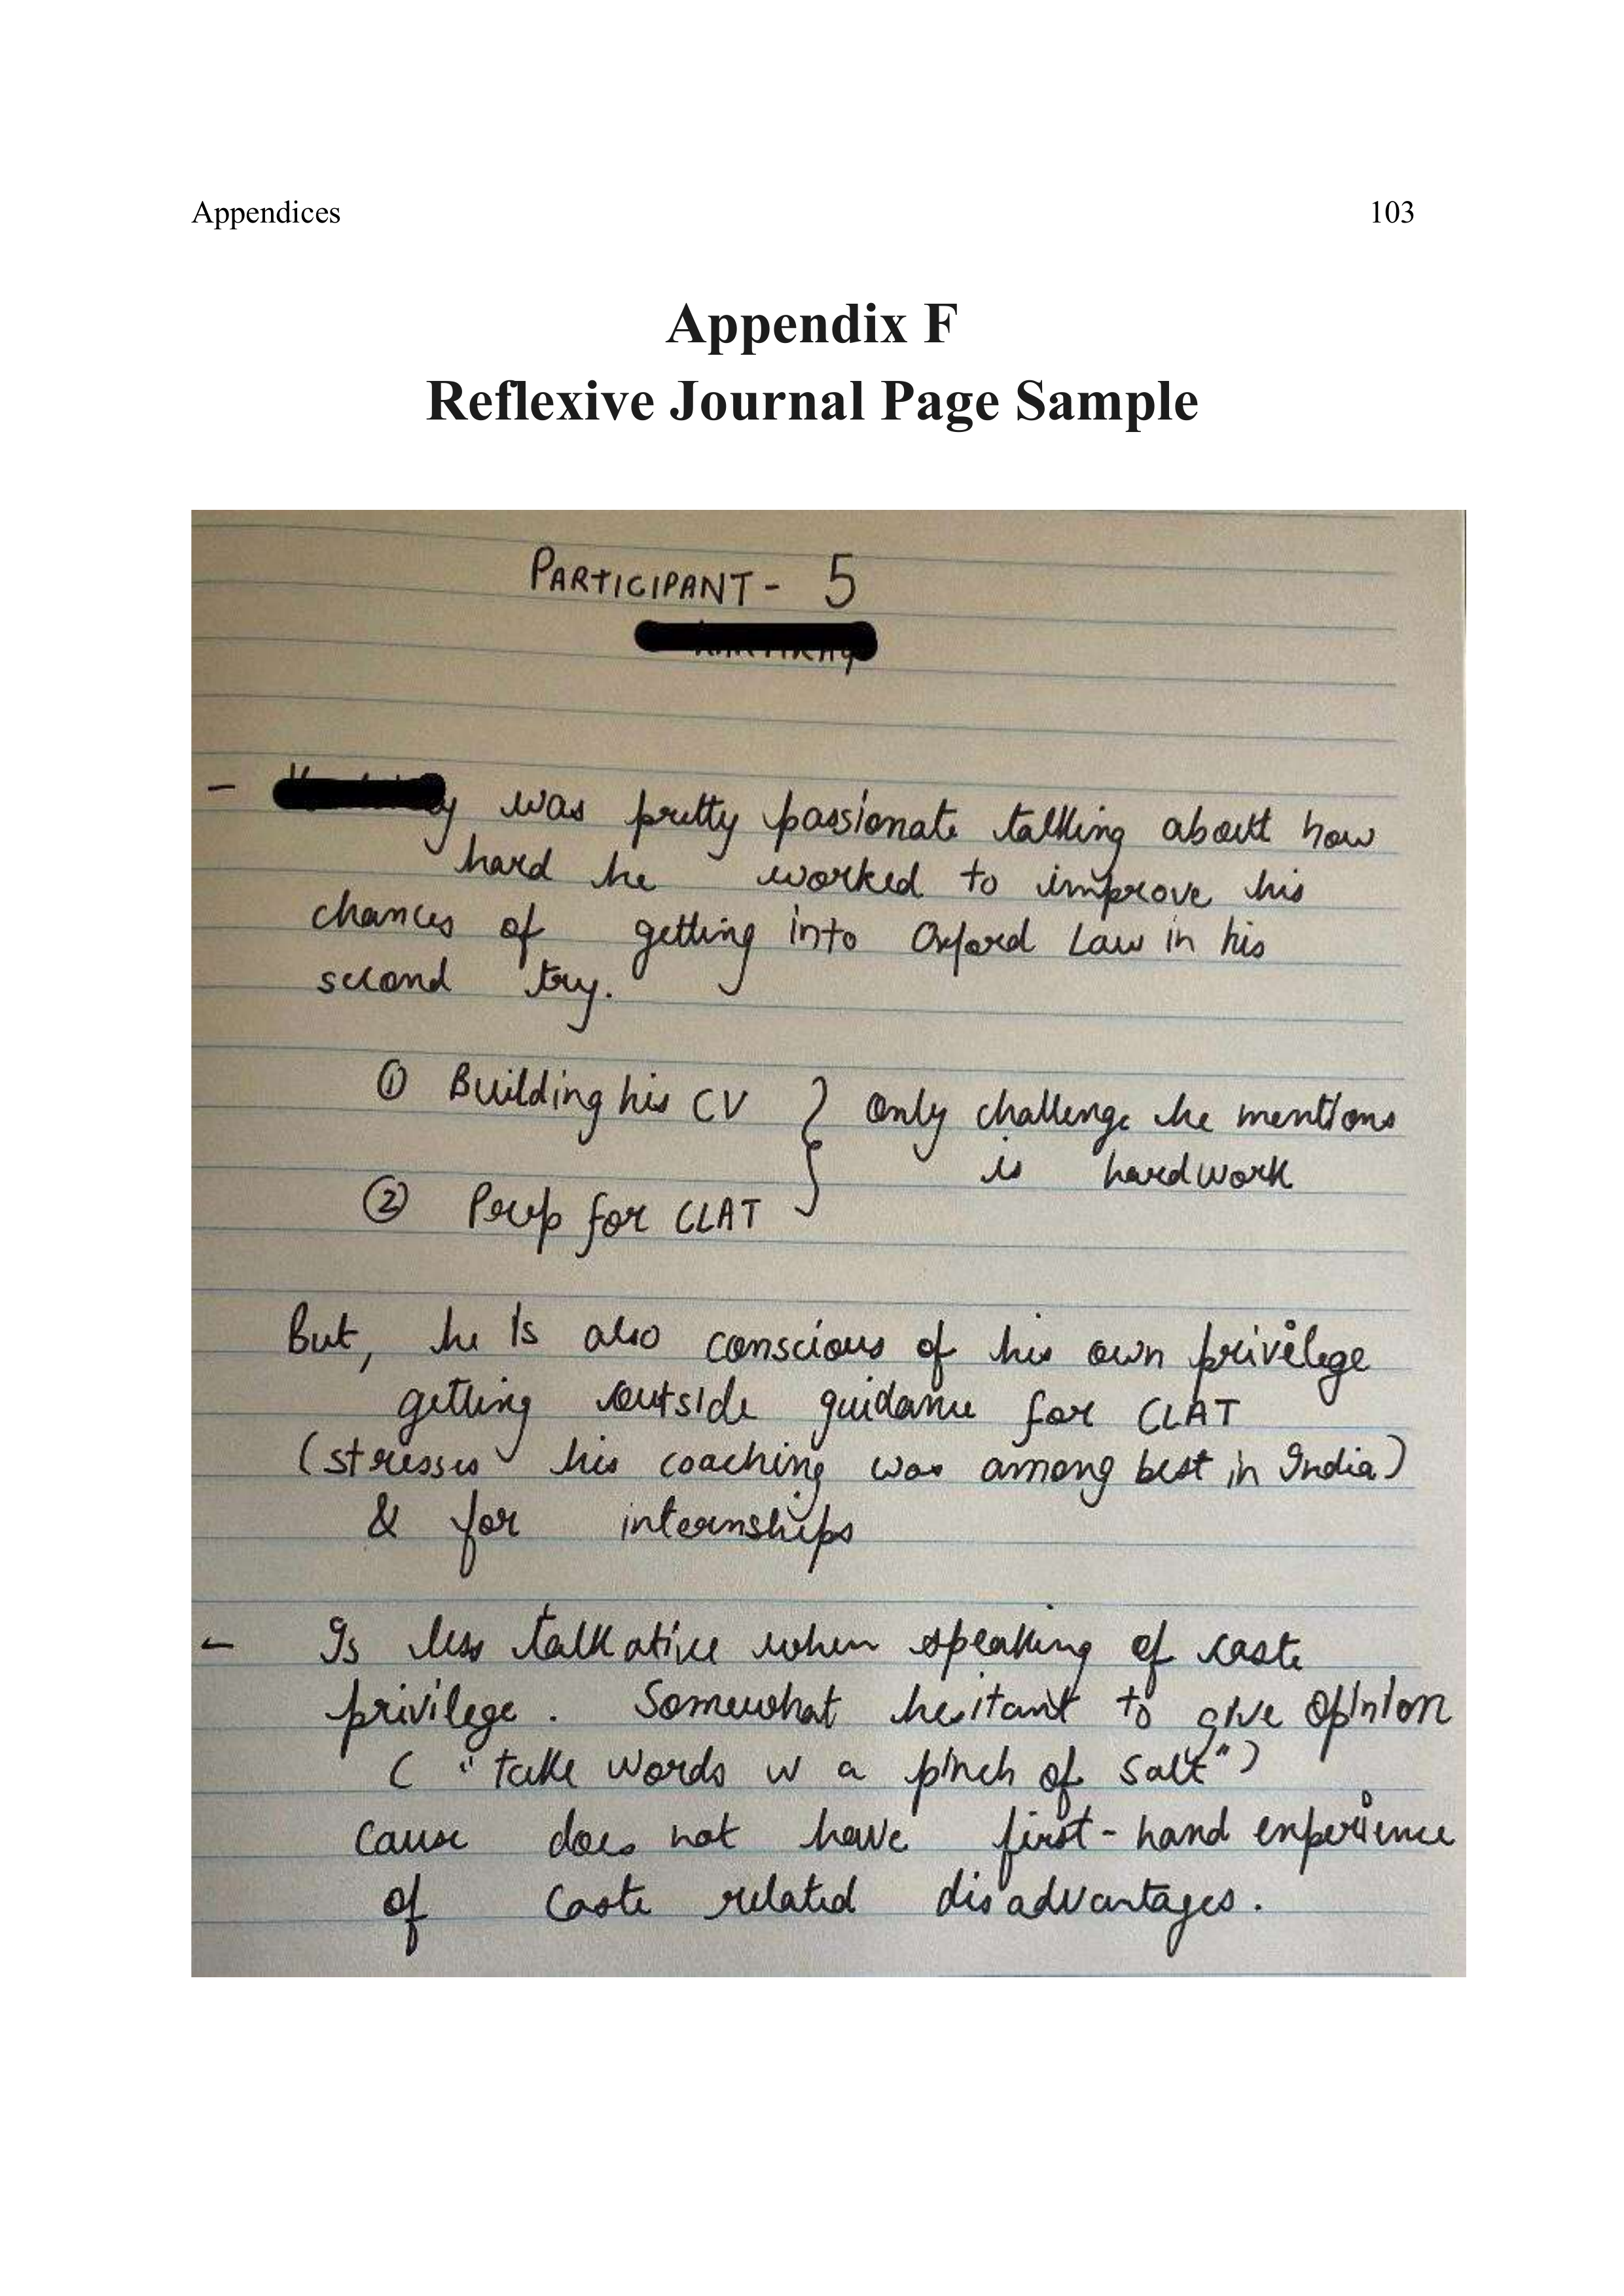 Appendices 103
Appendix F
Reflexive Journal Page Sample
PARTICIPANT - 5
- was pretty passionate talking about how
hard he worked to improve his
chances of getting into Oxford Law in his
second try.
① Building his CV } Only challenge he mentions
is hardwork
② Prep for CLAT
But, he is also conscious of his own privilege
getting outside guidance for CLAT
(stresses his coaching was among best in India)
& for internships
- Is less talkative when speaking of caste
privilege. Somewhat hesitant to give opinion
( "take words w a pinch of salt")
cause does not have first-hand experience
of caste related disadvantages.